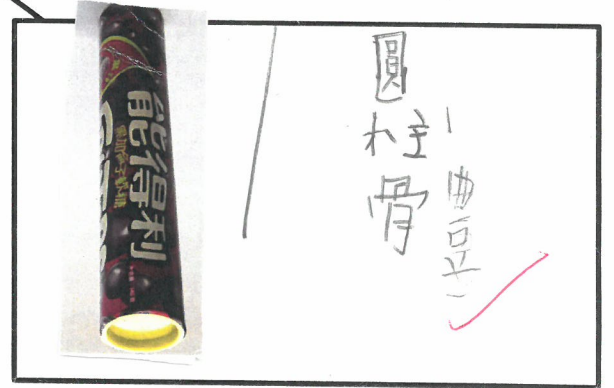 能得利
圓柱體